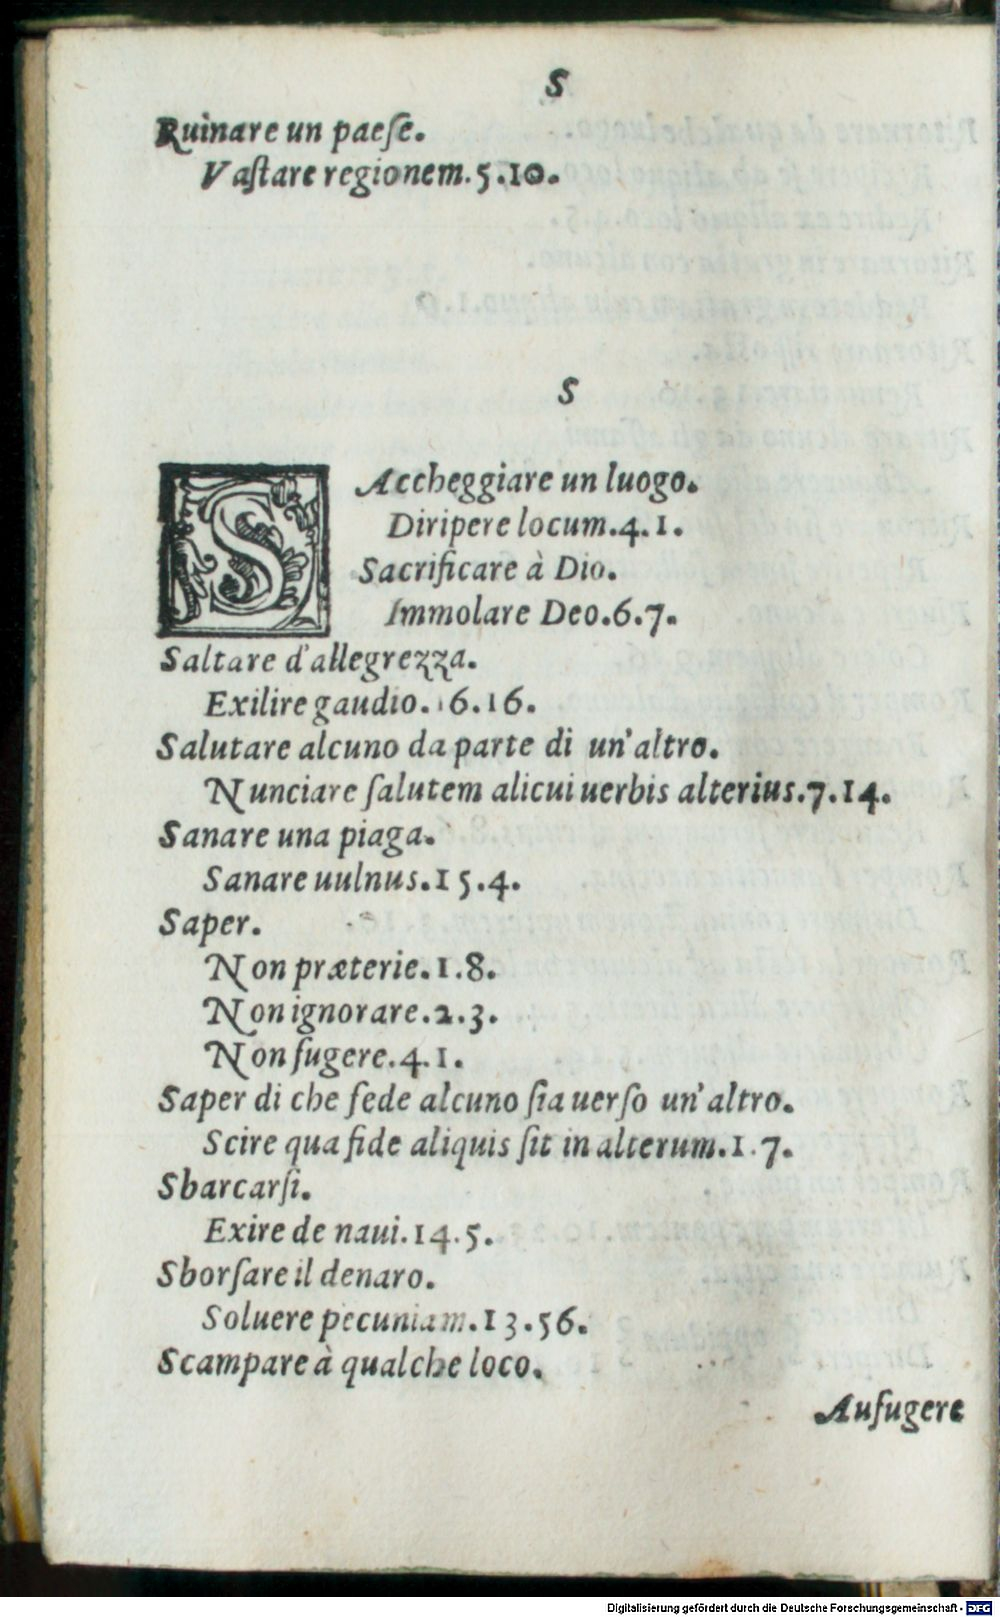 S
Ruinare un paeſe.
Vaſtare regionem. 5.10.
S
SAccheggiare un luogo.
Diripere locum. 4.1.
Sacrificare à Dio.
Immolare Deo. 6.7.
Saltare d'allegrezza.
Exilire gaudio. 16.16.
Salutare alcuno da parte di un'altro.
Nunciare ſalutem alicui uerbis alterius. 7.14.
Sanare una piaga.
Sanare uulnus. 15.4.
Saper.
Non præterie. 1.8.
Non ignorare. 2.3.
Non fugere. 4.1.
Saper di che fede alcuno ſia uerſo un'altro.
Scire qua fide aliquis ſit in alterum. 1.7.
Sbarcarſi.
Exire de naui. 14.5.
Sborſare il denaro.
Soluere pecuniam. 13.56.
Scampare à qualche loco.
Aufugere
Digitalisierung gefördert durch die Deutsche Forschungsgemeinschaft - DFG